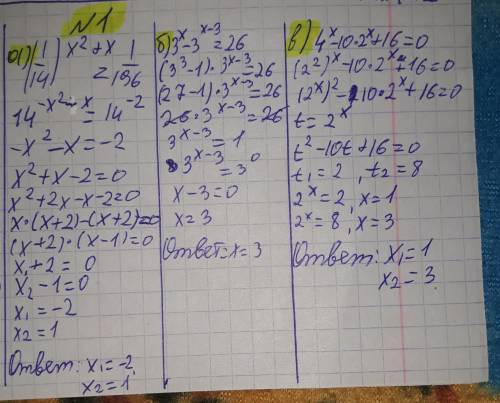 №1
а) (1/14)^(x²+x) = 1/196
14^(-x²-x) = 14^(-2)
-x²-x=-2
x²+x-2=0
x²+2x-x-2=0
x·(x+2)-(x+2)=0
(x+2)·(x-1)=0
x₁+2=0
x₂-1=0
x₁=-2
x₂=1
Ответ: x₁=-2,
x₂=1
б) 3^x-3^(x-3)=26
(3³-1)·3^(x-3)=26
(27-1)·3^(x-3)=26
26·3^(x-3)=26
3^(x-3)=1
3^(x-3)=3⁰
x-3=0
x=3
Ответ: x=3
в) 4^x-10·2^x+16=0
(2²)^x-10·2^x+16=0
(2^x)²-10·2^x+16=0
t=2^x
t²-10t+16=0
t₁=2, t₂=8
2^x=2, x=1
2^x=8, x=3
Ответ: x₁=1
x₂=3